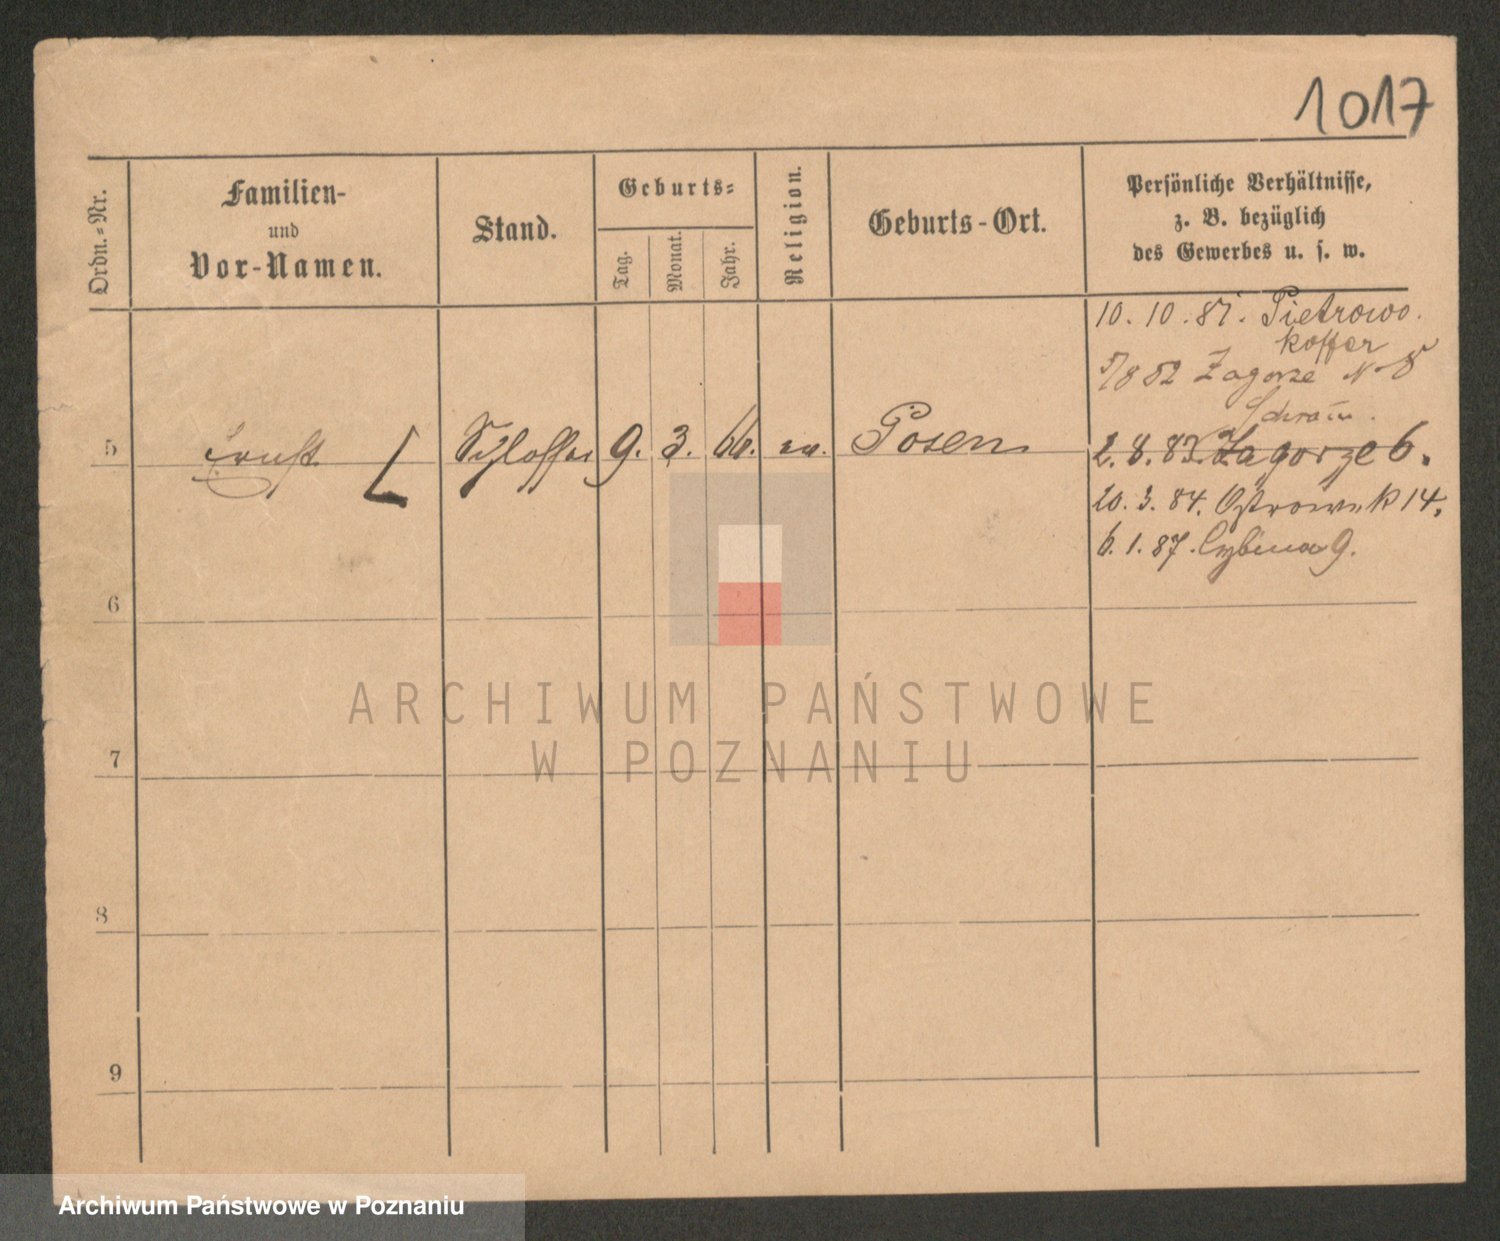 1017
Ordn.-Nr.
Familien-
und
Vor-Namen.
Stand.
Geburts-
Tag.
Monat.
Jahr.
Religion.
Geburts-Ort.
Persönliche Verhältnisse,
z. B. bezüglich
des Gewerbes u. s. w.
10. 10. 81. Pietrowo.
koffer
Zagorze N 8
5 Ernst Schlosser 9. 3. 66. ev. Posen
2. 8. 83. Zagorze 6.
20. 3. 84. Ostrowek 14.
6. 1. 87. Cybina 9.
6
7
8
9
ARCHIWUM PAŃSTWOWE
W POZNANIU
Archiwum Państwowe w Poznaniu